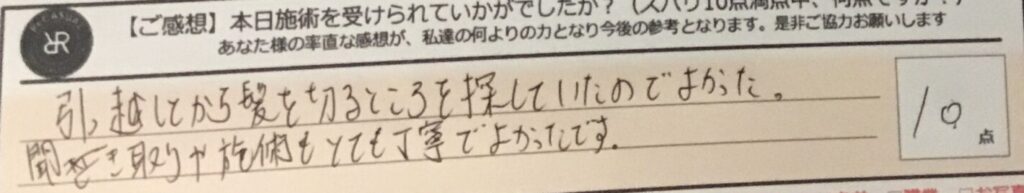 【ご感想】本日施術を受けられていかがでしたか？（ズバリ10点満点中、何点ですか？）
あなた様の率直な感想が、私達の何よりの力となり今後の参考となります。是非ご協力お願いします
引っ越してから髪を切るところを探していたのでよかった。
聞き取りや施術もとても丁寧でよかったです。
10点